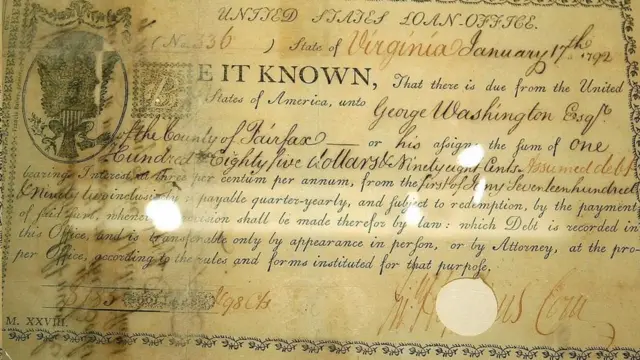 UNITED STATES LOAN-OFFICE.
(No. 236) State of Virginia January 17th 1792
E IT KNOWN, That there is due from the United
States of America, unto George Washington Esqr
of the County of Fairfax or his assigns the sum of one
Hundred Eighty five dollars & Ninety eight Cents Assumed debt
bearing Interest at three per centum per annum, from the first of Jany Seventeen hundred
& Ninety two inclusively payable quarter-yearly, and subject to redemption, by the payment
of said sum, whenever provision shall be made therefor by law: which Debt is recorded in
this Office, and is transferable only by appearance in person, or by Attorney, at the pro-
per Office, according to the rules and forms instituted for that purpose.
DOLLARS 98 Cts
M. XXVIII.